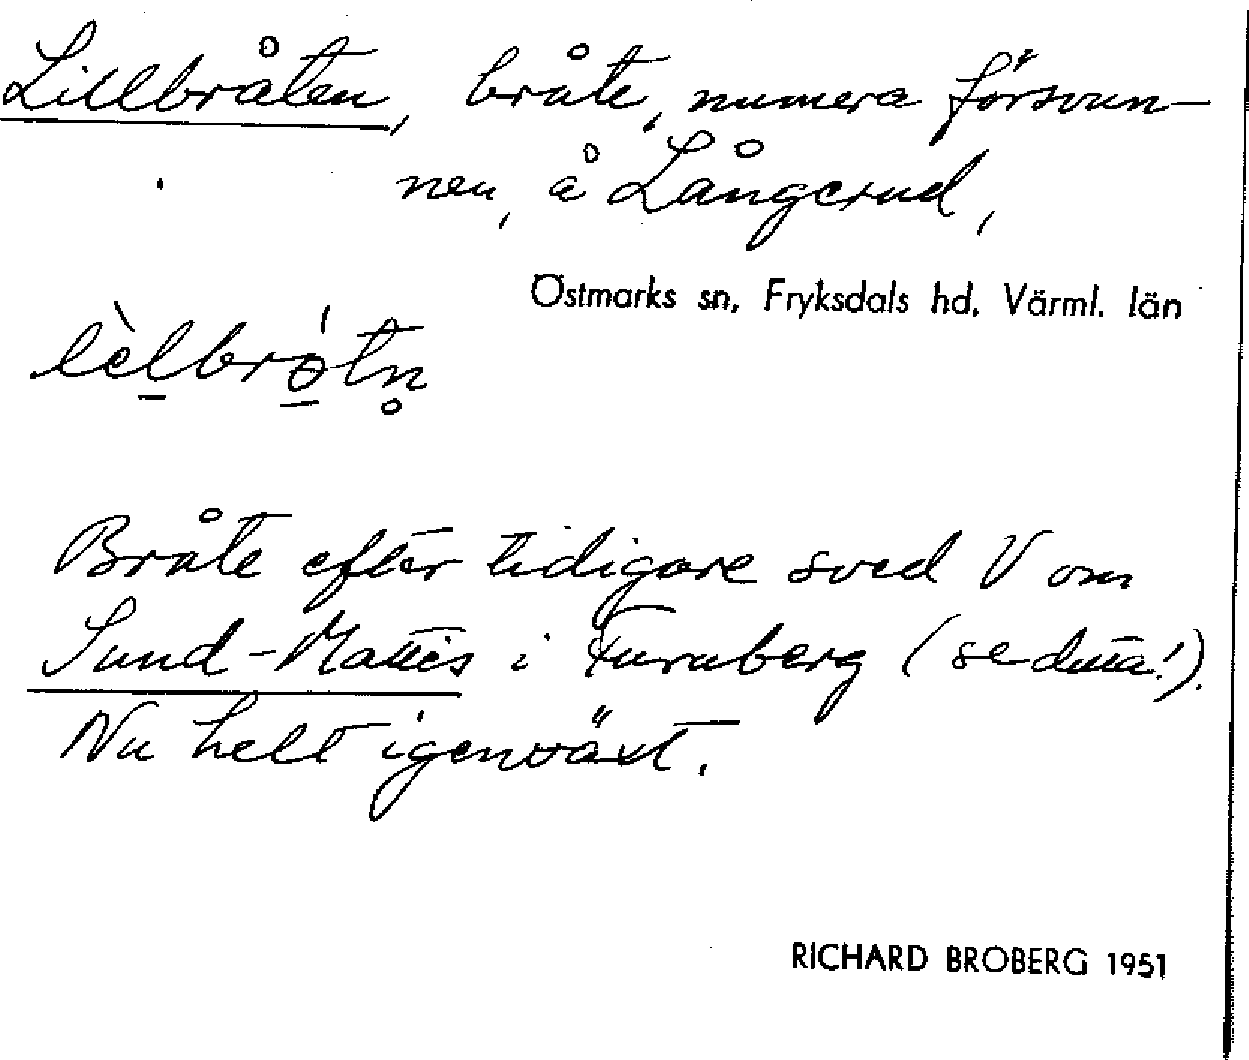 Lillbråten, bråte, numera försvun-
nen, å Långerud,
Östmarks sn, Fryksdals hd, Värml. län
Bråte efter tidigare sved V om
Sund-Mattis i Furuberg (se detta!).
Nu helt igenväxt.
RICHARD BROBERG 1951